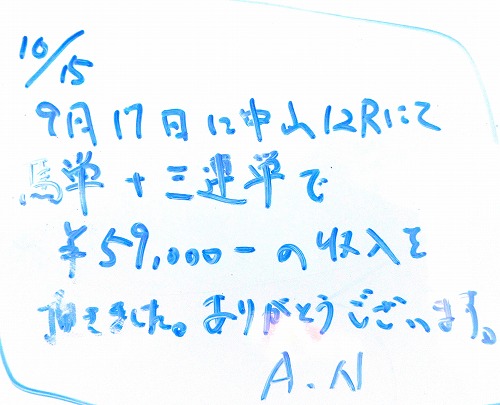 10/15
9月17日に中山12Rにて
馬単+三連単で
¥59,000-の収入を
頂きました。ありがとうございます。
A.N